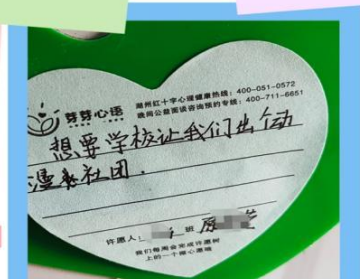 芽芽心语
湖州红十字心理健康热线：400-051-0572
晚间公益面谈咨询预约专线：400-711-6651
想要学校让我们出个动
漫社团.
许愿人： 班
我们每周会完成许愿树
上的一个暖心愿哦